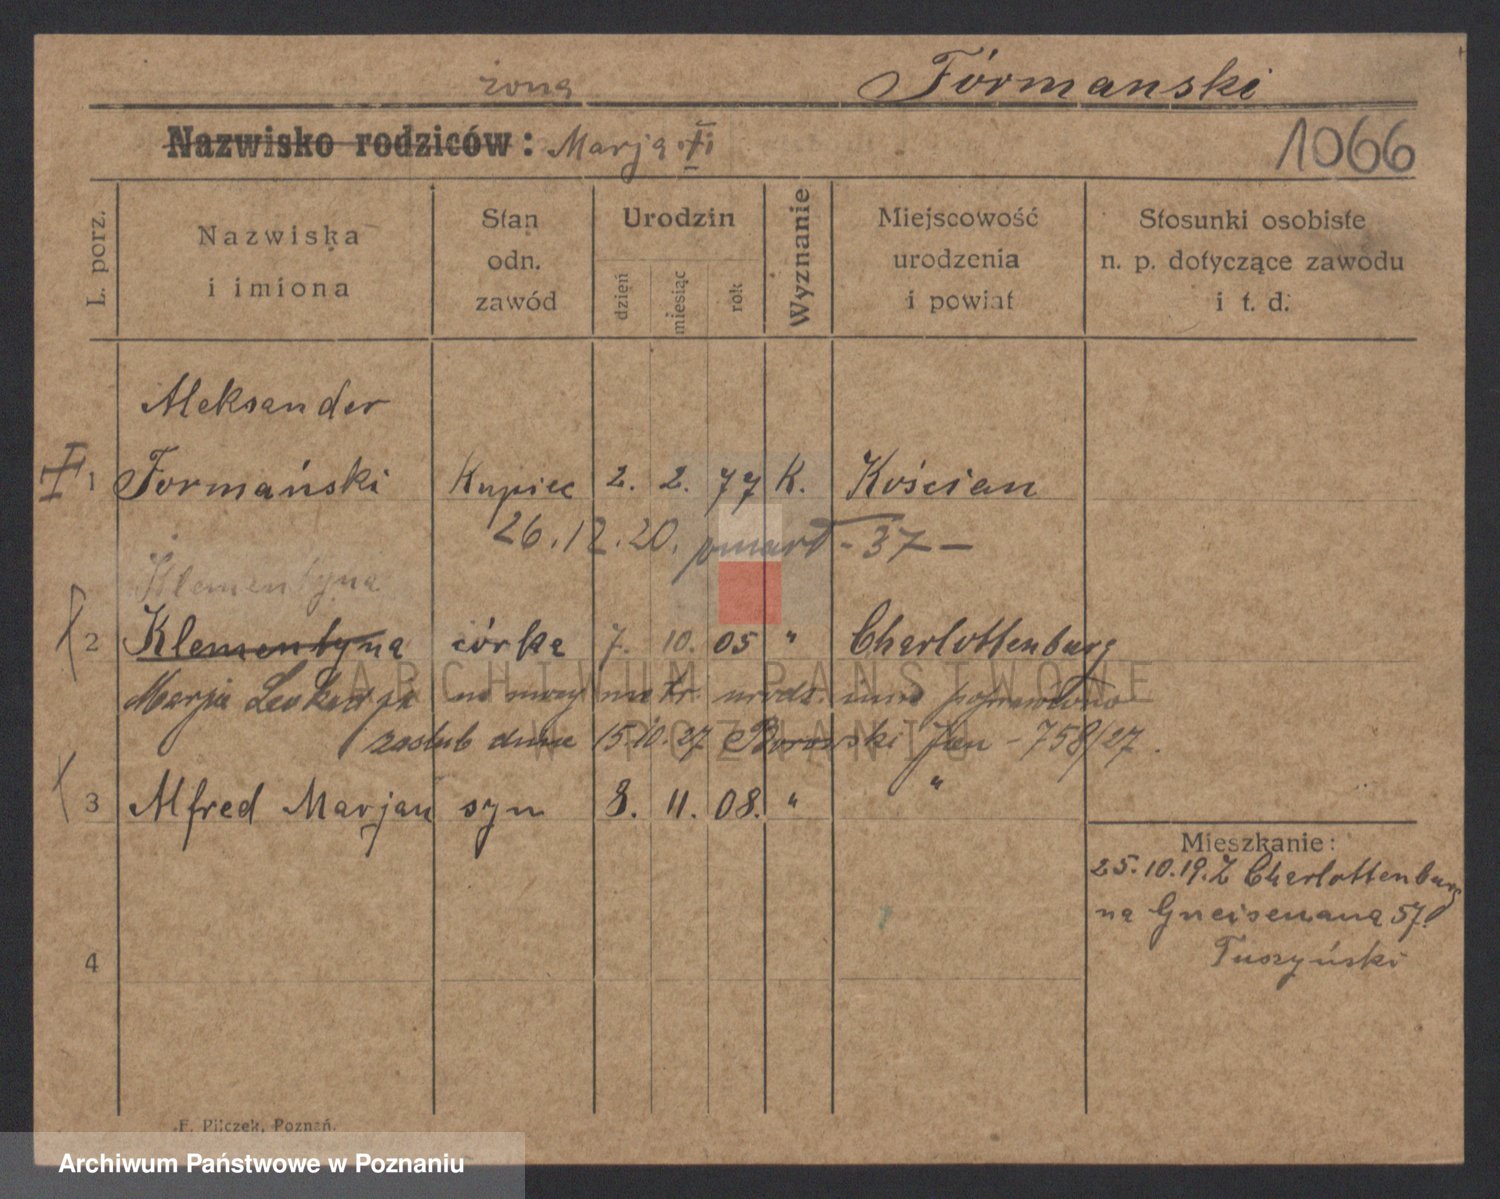 żona Fórmanski
Nazwisko rodziców: Marja
1066
L. porz.
Nazwiska
i imiona
Stan
odn.
zawód
Urodzin
dzień
miesiąc
rok
Wyznanie
Miejscowość
urodzenia
i powiat
Stosunki osobiste
n. p. dotyczące zawodu
i t. d.
Aleksander
1 Formański Kupiec 2. 2. 77 K. Kościan
26.12.20. zmarł - 37 -
Klementyna
2 Klementyna córka 7. 10. 05 " Charlottenburg
Marja Leokadja na mocy metr. urodz. imię poprawiono
zaślub dnia 15.10.27 Borowski Jan - 758/27.
3 Alfred Marjan syn 8. 11. 08. " "
Mieszkanie:
25.10.19. Z Charlottenburg
na Gneisenaua 57.
Tuszyński
4
F. Pilczek, Poznań.
ARCHIWUM PAŃSTWOWE
W POZNANIU
Archiwum Państwowe w Poznaniu